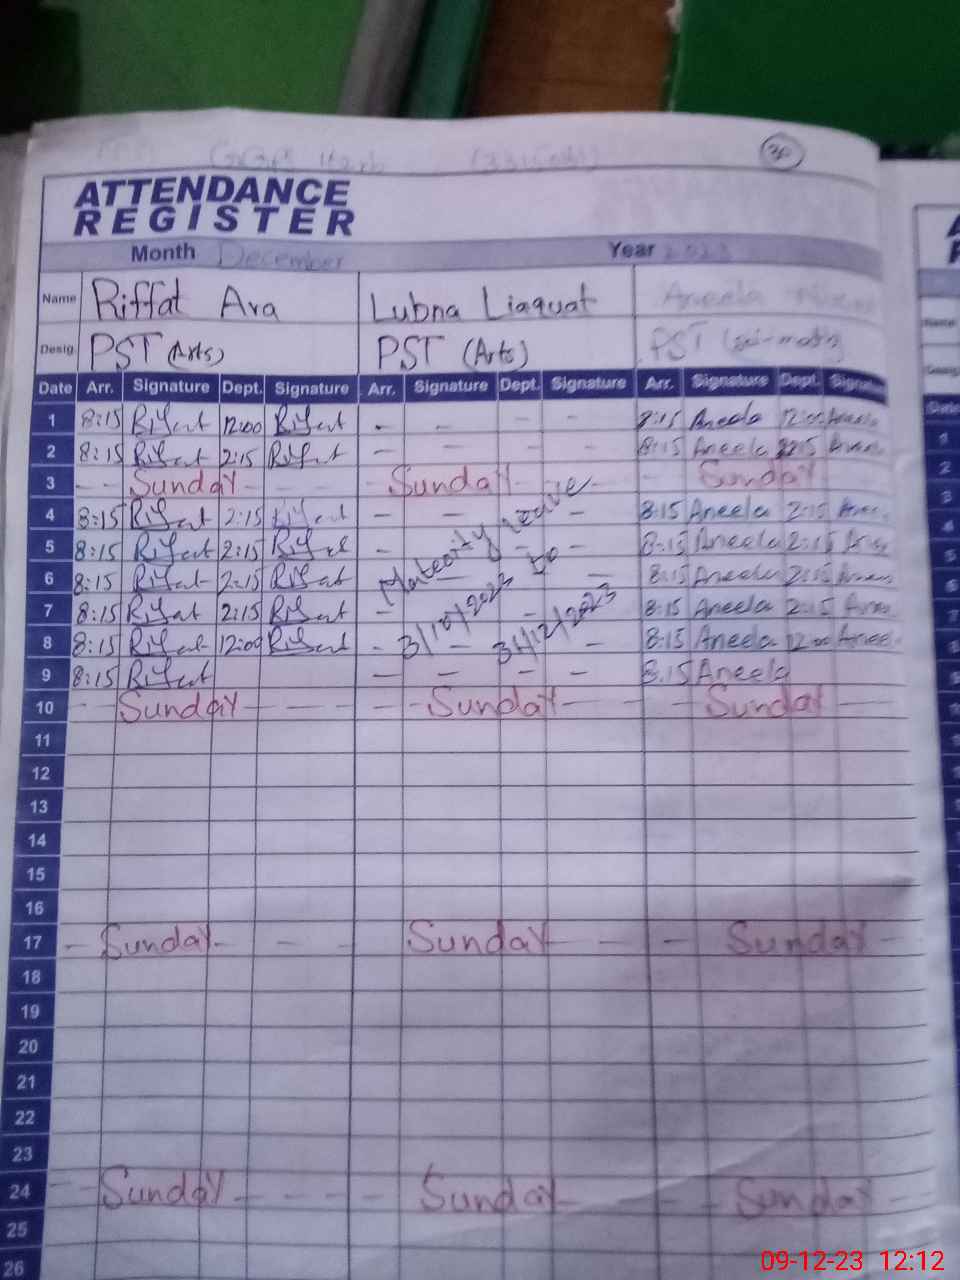 30
ATTENDANCE
REGISTER
Month December Year 2023
Name Riffat Ara Lubna Liaquat Aneela
Desig. PST (Arts) PST (Arts) PST (sci-math)
Date Arr. Signature Dept. Signature Arr. Signature Dept. Signature Arr. Signature Dept. Signature
1 8:15 Riffat 12:00 Riffat - - - - 8:15 Aneela 12:00 Aneela
2 8:15 Riffat 2:15 Riffat - - - - 8:15 Aneela 2:15 Aneela
3 - - Sunday - - - Sunday - - - Sunday
4 8:15 Riffat 2:15 Riffat - - - 8:15 Aneela 2:15 Aneela
5 8:15 Riffat 2:15 Riffat - - - 8:15 Aneela 2:15 Aneela
6 8:15 Riffat 2:15 Riffat - - 8:15 Aneela 2:15 Aneela
7 8:15 Riffat 2:15 Riffat - - - 8:15 Aneela 2:15 Aneela
8 8:15 Riffat 12:00 Riffat - - - - 8:15 Aneela 12:00 Aneela
Mateority leave
3/10/2023 to
31/12/2023
9 8:15 Riffat - - - - 8:15 Aneela
10 - - Sunday - - - - - Sunday - - - Sunday - -
11
12
13
14
15
16
17 - Sunday - - - Sunday - - - - Sunday - -
18
19
20
21
22
23
24 - - Sunday - - - - - Sunday - - - Sunday - -
25
26
09-12-23 12:12